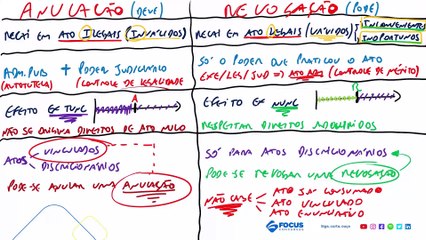 ANULAÇÃO (DEVE)
RECAI EM ATO ILEGAIS (INVÁLIDOS)
ADM. PUB + PODER JUDICIÁRIO
(AUTOTUTELA) (CONTROLE DE LEGALIDADE)
A
EFEITO EX TUNC
NÃO SE ORIGINA DIREITOS DE ATO NULO
ATOS VINCULADOS
DISCRICIONÁRIOS
PODE-SE ANULAR UMA ANULAÇÃO
REVOGAÇÃO (PODE)
RECAI EM ATO LEGAIS (VÁLIDOS) INCONVENIENTES
INOPORTUNOS
SÓ O PODER QUE PRATICOU O ATO
EXE/LEG/JUD => ATO ADM (CONTROLE DE MÉRITO)
R
EFEITO EX NUNC
RESPEITAR DIREITOS ADQUIRIDOS
SÓ PARA ATOS DISCRICIONÁRIOS
PODE-SE REVOGAR UMA REVOGAÇÃO
NÃO CABE ATO JÁ CONSUMADO
ATO VINCULADO
ATO ENUNCIATIVO
FOCUS
CONCURSOS